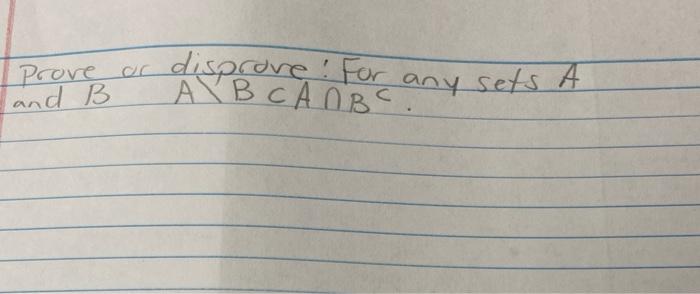 Prove or disprove: For any sets A
and B A\B ⊂ A∩Bᶜ.